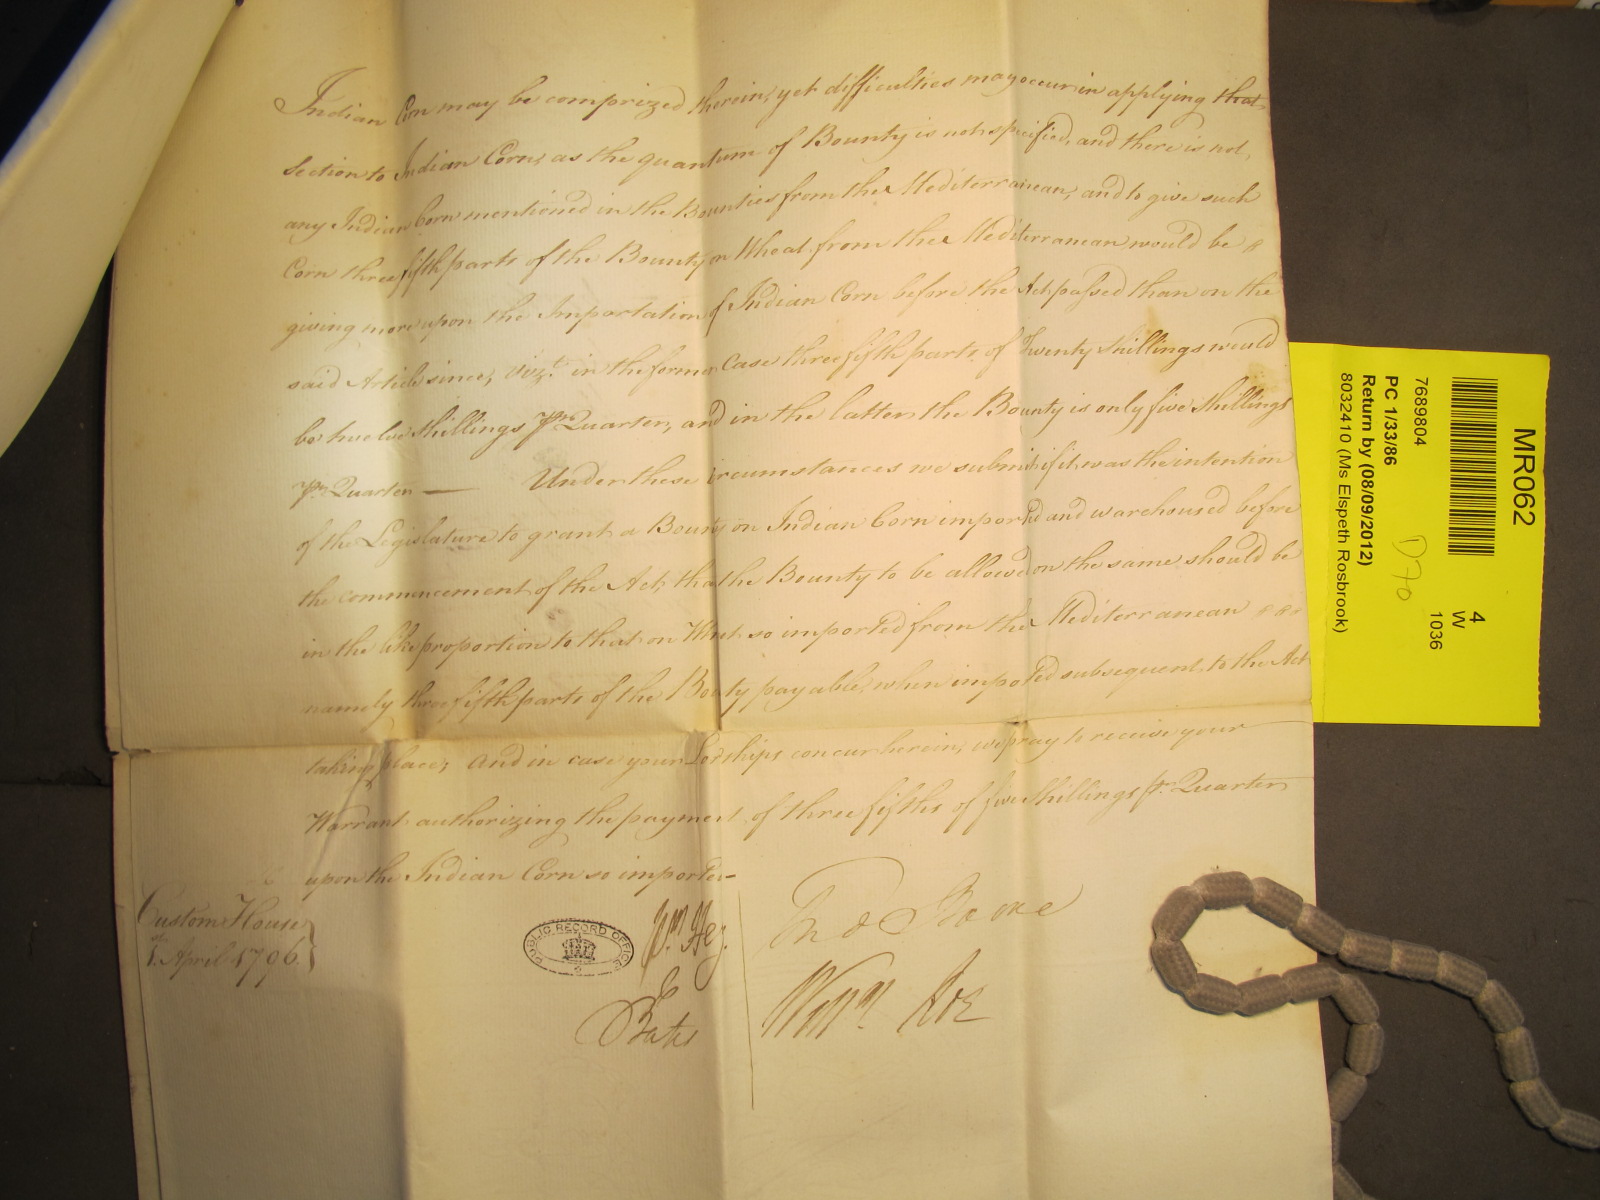 Indian Corn may be comprized therein, yet difficulties may occur in applying that
Section to Indian Corn, as the quantum of Bounty is not specified, and there is not
any Indian Corn mentioned in the Bounties from the Mediterranean, and to give such
Corn three fifth parts of the Bounty on Wheat from the Mediterranean would be
giving more upon the Importation of Indian Corn before the Act passed than on the
said Article since, vizt. in the former Case three fifth parts of Twenty Shillings would
be twelve Shillings Pr. Quarter, and in the latter the Bounty is only five Shillings
Pr. Quarter — Under these circumstances we submit if it was the intention
of the Legislature to grant a Bounty on Indian Corn imported and warehoused before
the commencement of the Act, that the Bounty to be allowed on the same should be
in the like proportion to that on Wheat so imported from the Mediterranean
namely three fifth parts of the Bounty payable, when imported subsequent to the Act
taking place; And in case your Lordships concur herein, we pray to receive your
Warrant authorizing the payment of three fifths of five Shillings pr. Quarter
upon the Indian Corn so imported—
Custom House
1st. April 1796.
PUBLIC RECORD OFFICE
Wm. Hey.
E Bates
Thos Boone
Willm. Roe
MR062
4
W
1036
7689804
D70
PC 1/33/86
Return by (08/09/2012)
8032410 (Ms Elspeth Rosbrook)